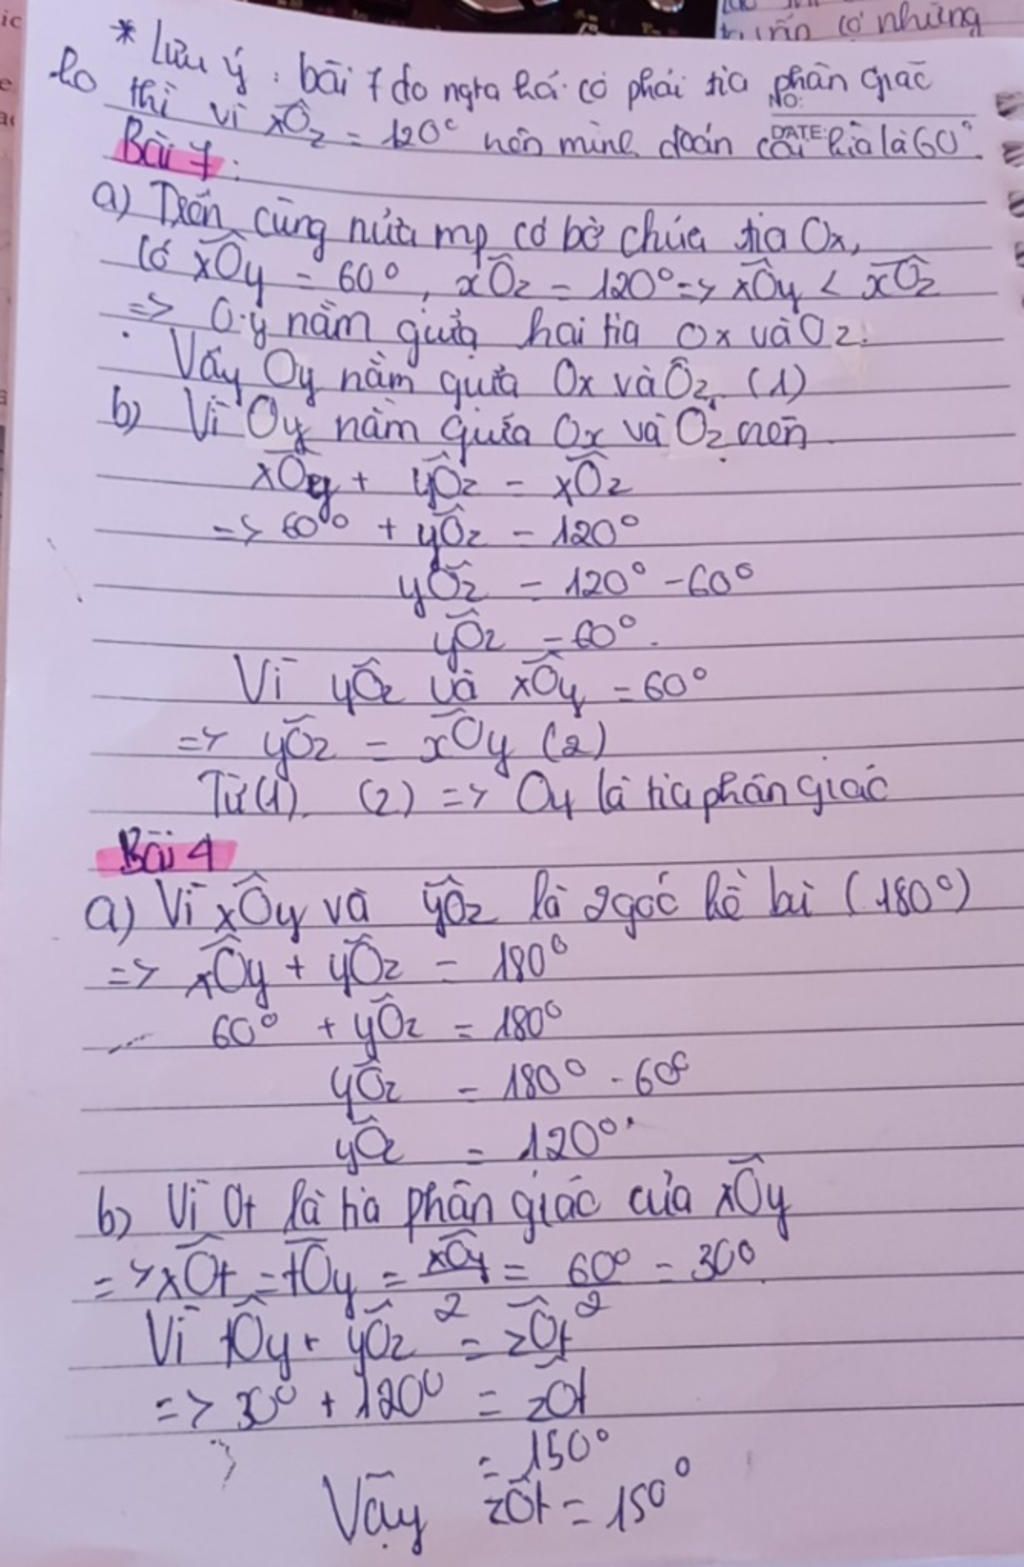 có những
* Lưu ý : bài 7 do người ta có phải tia phân giác
ko thì vì xÔz = 120° nên mình đoán cái kia là 60°.
NO:
DATE:
Bài 7:
a) Trên cùng nửa mp có bờ chứa tia Ox,
Có xÔy = 60°, xÔz = 120° => xÔy < xÔz
=> Oy nằm giữa hai tia Ox và Oz.
Vậy Oy nằm giữa Ox và Oz (1)
b) Vì Oy nằm giữa Ox và Oz nên
xÔy + yÔz = xÔz
=> 60° + yÔz = 120°
yÔz = 120° - 60°
yÔz = 60°.
Vì yÔz và xÔy = 60°
=> yÔz = xÔy (2)
Từ (1), (2) => Oy là tia phân giác
Bài 4
a) Vì xÔy và yÔz là 2 góc kề bù (180°)
=> xÔy + yÔz = 180°
60° + yÔz = 180°
yÔz = 180° - 60°
yÔz = 120°.
b) Vì Ot là tia phân giác của xÔy
=> xÔt = tÔy = xÔy/2 = 60°/2 = 30°
Vì tÔy + yÔz = zÔt
=> 30° + 120° = zÔt
= 150°
Vậy zÔt = 150°